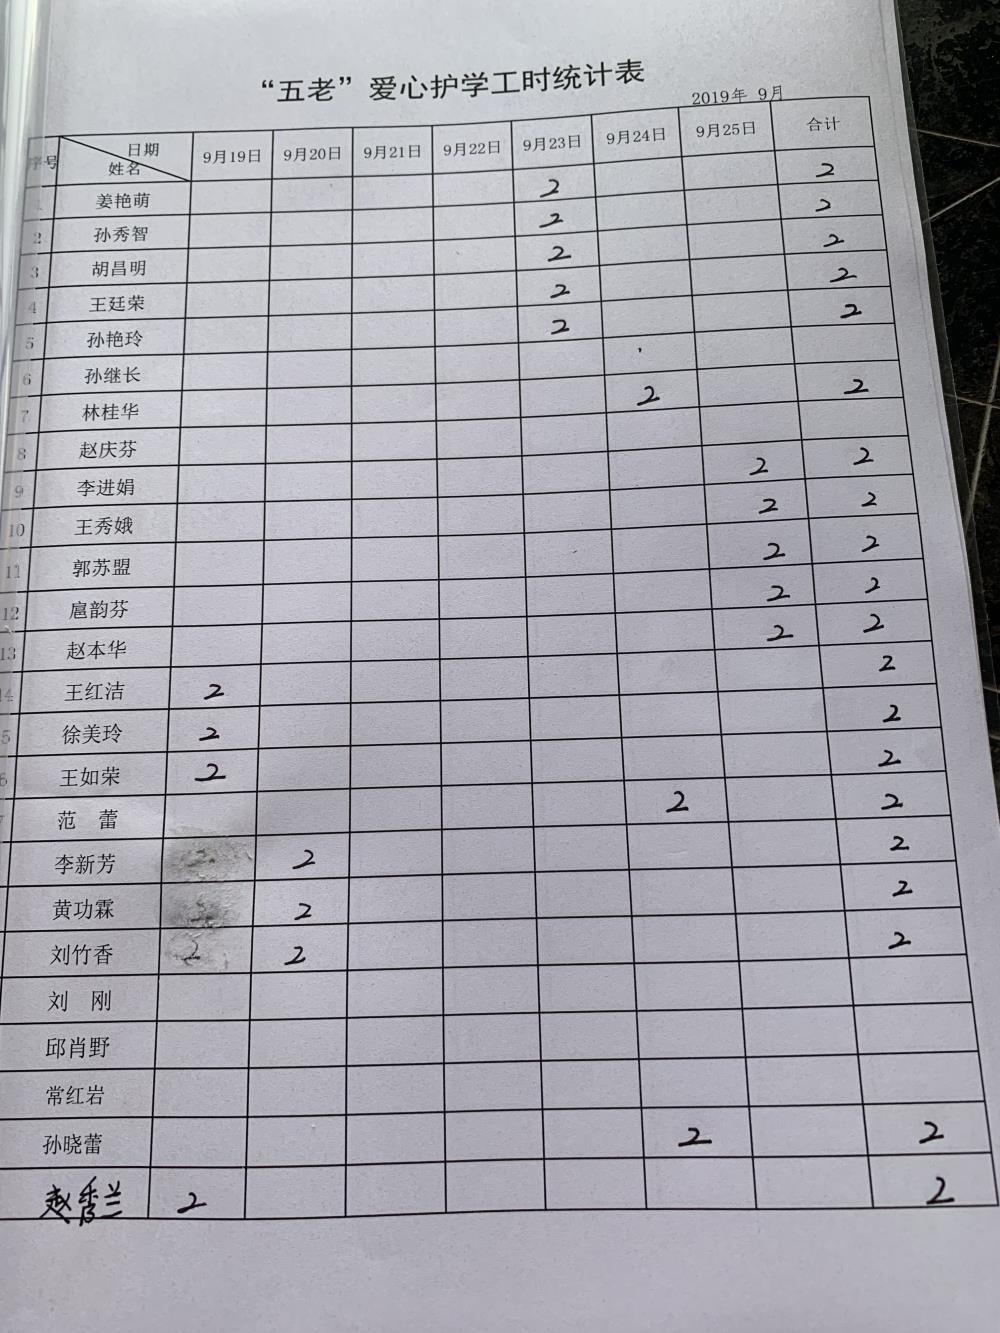 “五老”爱心护学工时统计表
2019年 9月
序号 日期 姓名 9月19日 9月20日 9月21日 9月22日 9月23日 9月24日 9月25日 合计
1 姜艳萌 2 2
2 孙秀智 2 2
3 胡昌明 2 2
4 王廷荣 2 2
5 孙艳玲 2 2
6 孙继长
7 林桂华 2 2
8 赵庆芬
9 李进娟 2 2
10 王秀娥 2 2
11 郭苏盟 2 2
12 扈韵芬 2 2
13 赵本华 2 2
14 王红洁 2 2
5 徐美玲 2 2
6 王如荣 2 2
7 范 蕾 2 2
李新芳 2 2 2
黄功霖 2 2
刘竹香 2 2 2
刘 刚
邱肖野
常红岩
孙晓蕾 2 2
赵秀兰 2 2